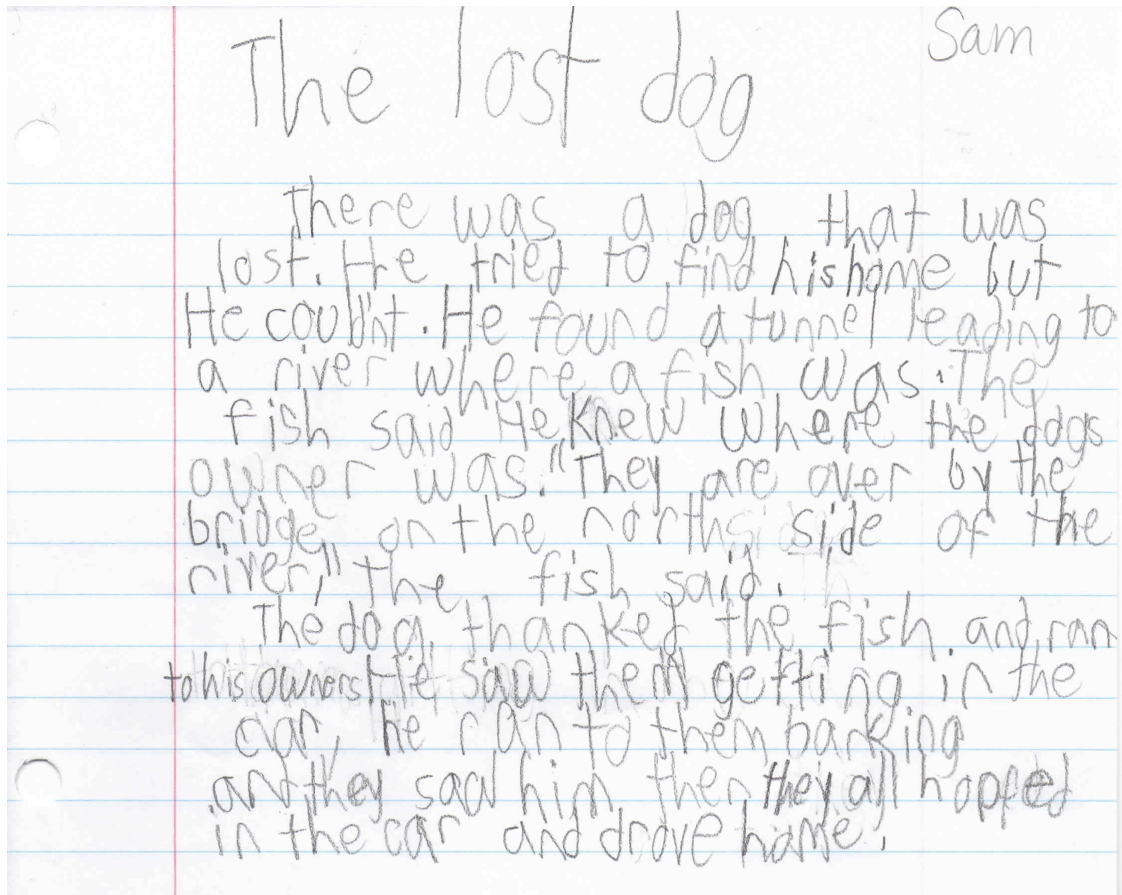 Sam
The lost dog
There was a dog that was
lost. He tried to find his home but
He could'nt. He found a tunnel leading to
a river where a fish was. The
fish said He knew where the dogs
owner was. "They are over by the
bridge on the north side of the
river," the fish said.
The dog thanked the fish and ran
to his owners He saw them getting in the
car, he ran to them barking
and they saw him then they all hopped
in the car and drove home.